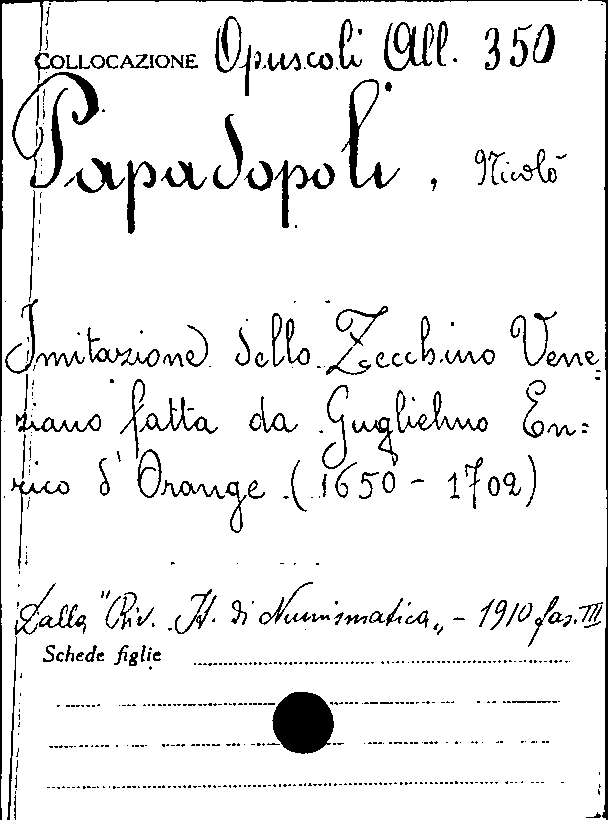 COLLOCAZIONE Opuscoli All. 350
Papadopoli, Nicolò
Imitazione dello Zecchino Vene=
ziano fatta da Guglielmo En=
rico d'Orange (1650 - 1702)
Dalla "Riv. It. di Numismatica„ - 1910 fas. III
Schede figlie